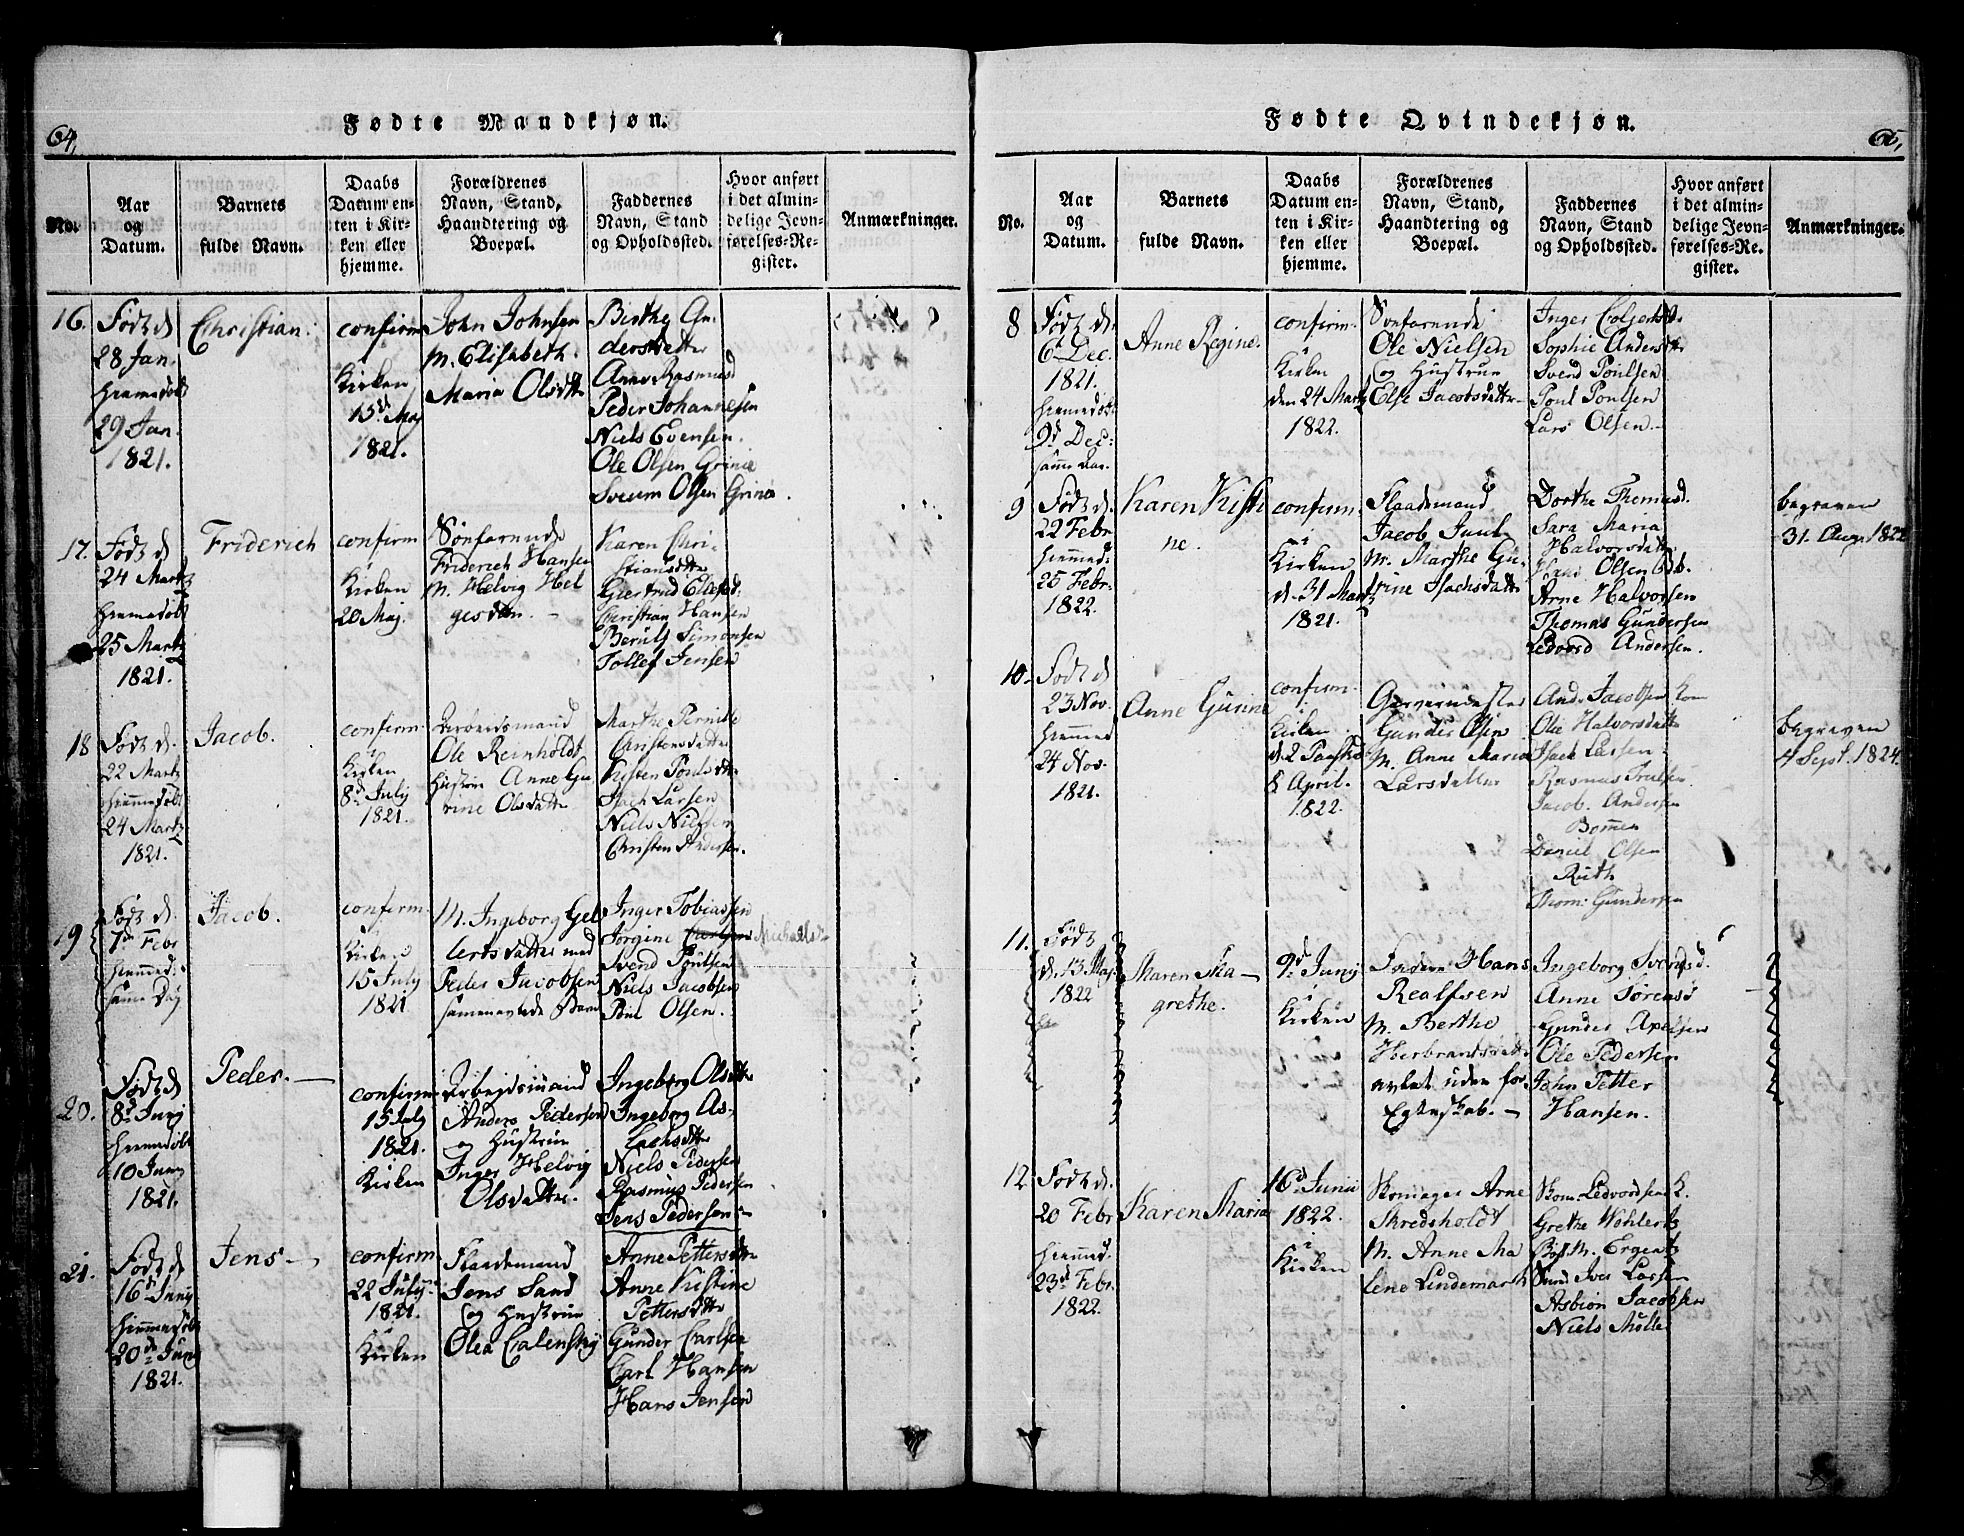 64,
Fødte Mandkjøn.
No.
Aar
og
Datum.
Barnets
fulde Navn.
Daabs
Datum en-
ten i Kir-
ken eller
hjemme.
Forældrenes
Navn, Stand,
Haandtering og
Boepæl.
Faddernes
Navn, Stand
og Opholdssted.
Hvor anført
i det almin-
delige Jevn-
førelses-Re-
gister.
Anmærkninger.
16.
Født d
28 Jan.
hiemmedøbt
29 Jan.
1821.
Christian.
confirm.
i
Kirken
15d Maj
1821.
John Johnsen
M. Elisabeth
Maria Olsdtt
Birthe An-
dersdatter
Anne Rasmusd
Peder Johannesen
Niels Evensen.
Ole Olsen Grinie
Olsen Grina.
17.
Født d
24 Martz
hiemmedøbt
25 Martz
1821.
Friderich
confirm
i
Kirken
20 Maj.
Sønfarende
Friderich Hansen
M. Helvig Hel
gesdtt.
Karen Chri-
stiansdtter
Giertrud Ellefsd:
Christian Hansen
Simonsen
Tollef Jensen
18
Født d.
22 Martz
hiemmedøbt
24 Martz
1821.
Jacob.
confirm.
i
Kirken
8d July
1821.
Ole Reinholdt
Hustrue Anne Gu
rine Olsdatter
Marthe Pernille
Christensdatter
Kisten Poulsdtter
Isach Larsen
Niels Nielsen
Christen Andersen.
19
Født d.
7de Febr
hiemmed:
samme Dag
Jacob.
confirm.
i
Kirken
15 July
1821
M. Ingeborg Gel
lertsdatter med
Peder Jacobsen
sammenavlede Barn
Inger Tobiassen
Jørgine Michaels
Svend Poulsen
Niels Jacobsen
Poul Olsen.
20.
Født d
8d Junij
hiemmedøbt
10 Juny
1821.
Peder.
confirm
15 July
1821.
Kirken
Arbejdsmand
Anders Pedersen
og Hustrue
Inger Helvig
Olsdatter.
Ingeborg Olsdtter
Ingeborg As-
lachsdtter
Niels Pedersen
Rasmus Pedersen
Jens Pedersen
21.
Født d
16de Junij
hiemmedøbt
20de Juny
1821.
Jens
confirm
22 July
1821.
i
Kirken
Flaademand
Jens Sand
og Hustrue
Olea Calensky
Anne Pettersdtter
Anne Kistine
Pettersdtter
Gunder Carlsen
Carl Hansen
Hans Jensen
Fødte Qvindekjøn.
65,
No.
Aar
og
Datum.
Barnets
fulde Navn.
Daabs
Datum en-
ten i Kir-
ken eller
hjemme.
Forældrenes
Navn, Stand,
Haandtering og
Boepæl.
Faddernes
Navn, Stand
og Opholdssted.
Hvor anført
i det almin-
delige Jevn-
førelses-Re-
gister.
Anmærkninger.
8
Født d.
6 Dec.
1821.
hiemmedøbt
9d Dec:
samme Aar.
Anne Regine.
confirm.
i
Kirken
den 24 Martz
1822.
Sønfarende
Ole Nielsen
og Hustrue
Else Jacobsdatter
Inger
Sophie Andersdtt
Svend Poulsen
Poul Poulsen
Lars Olsen.
9
Født d.
22 Febr
hiemmed:
25 Febr:
1822.
Karen Kisti
ne.
confirm.
i
Kirken
d. 31 Martz
1821.
Flaademand
Jacob Juul
M. Marthe Gu-
rine Isachsdatter
Dorthe Thomasd.
Sara Maria
Halvorsdatter
Hans Olsen
Arne Halvorsen
Thomas Gundersen
Ledvord Andersen.
begraven
31. Aug. 1822
10.
Født d
23 Nov.
hiemmed
24 Nov.
1821.
Anne Gurine
confirm.
i
Kirken
d. 2 Paaskd.
8 April.
1822.
Gunder Olsen
M. Anne Maria
Larsdatter
And. Jacobsen Kone
Olie Halvorsdatter
Isach Larsen
Rasmus Truelsen
Jacob. Andersen
Bomen
Daniel Olsen
Ruth
Thom: Gundersen
begraven
4 Sept. 1824.
11.
Født
d. 13 Maj
1822
Maren Ma-
grethe.
9d Junij
i
Kirken
Hans
Realfsen
M. Berthe
Herbrantsdatter
avlet uden for
Egteskab.
Ingeborg Svendsd.
Anne Sørensd
Gunder Axelsen
Ole Pedersen
John Petter
Hansen.
12.
Født d.
20 Febr
hiemmed.
23d Febr.
1822.
Karen Maria
16d Junii
1822.
i
Kirken
Skomager Arne
Skredsholdt
M. Anne Ma
lene Lindemark
Thom. Ledvordsen K.
Grethe Wøhlertz
M. Ergentz
Iver Larsen
Asbiøn Jacobsen
Niels Møller